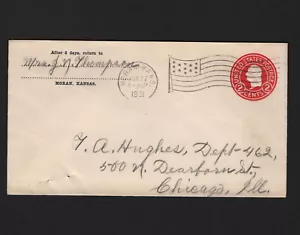 After 5 days, return to
Mrs. J. N. Thompson
MORAN, KANSAS.
1931
UNITED STATES POSTAGE
2 CENTS 2
F. A. Hughes, Dept-462,
500 N. Dearborn St,
Chicago, Ill.